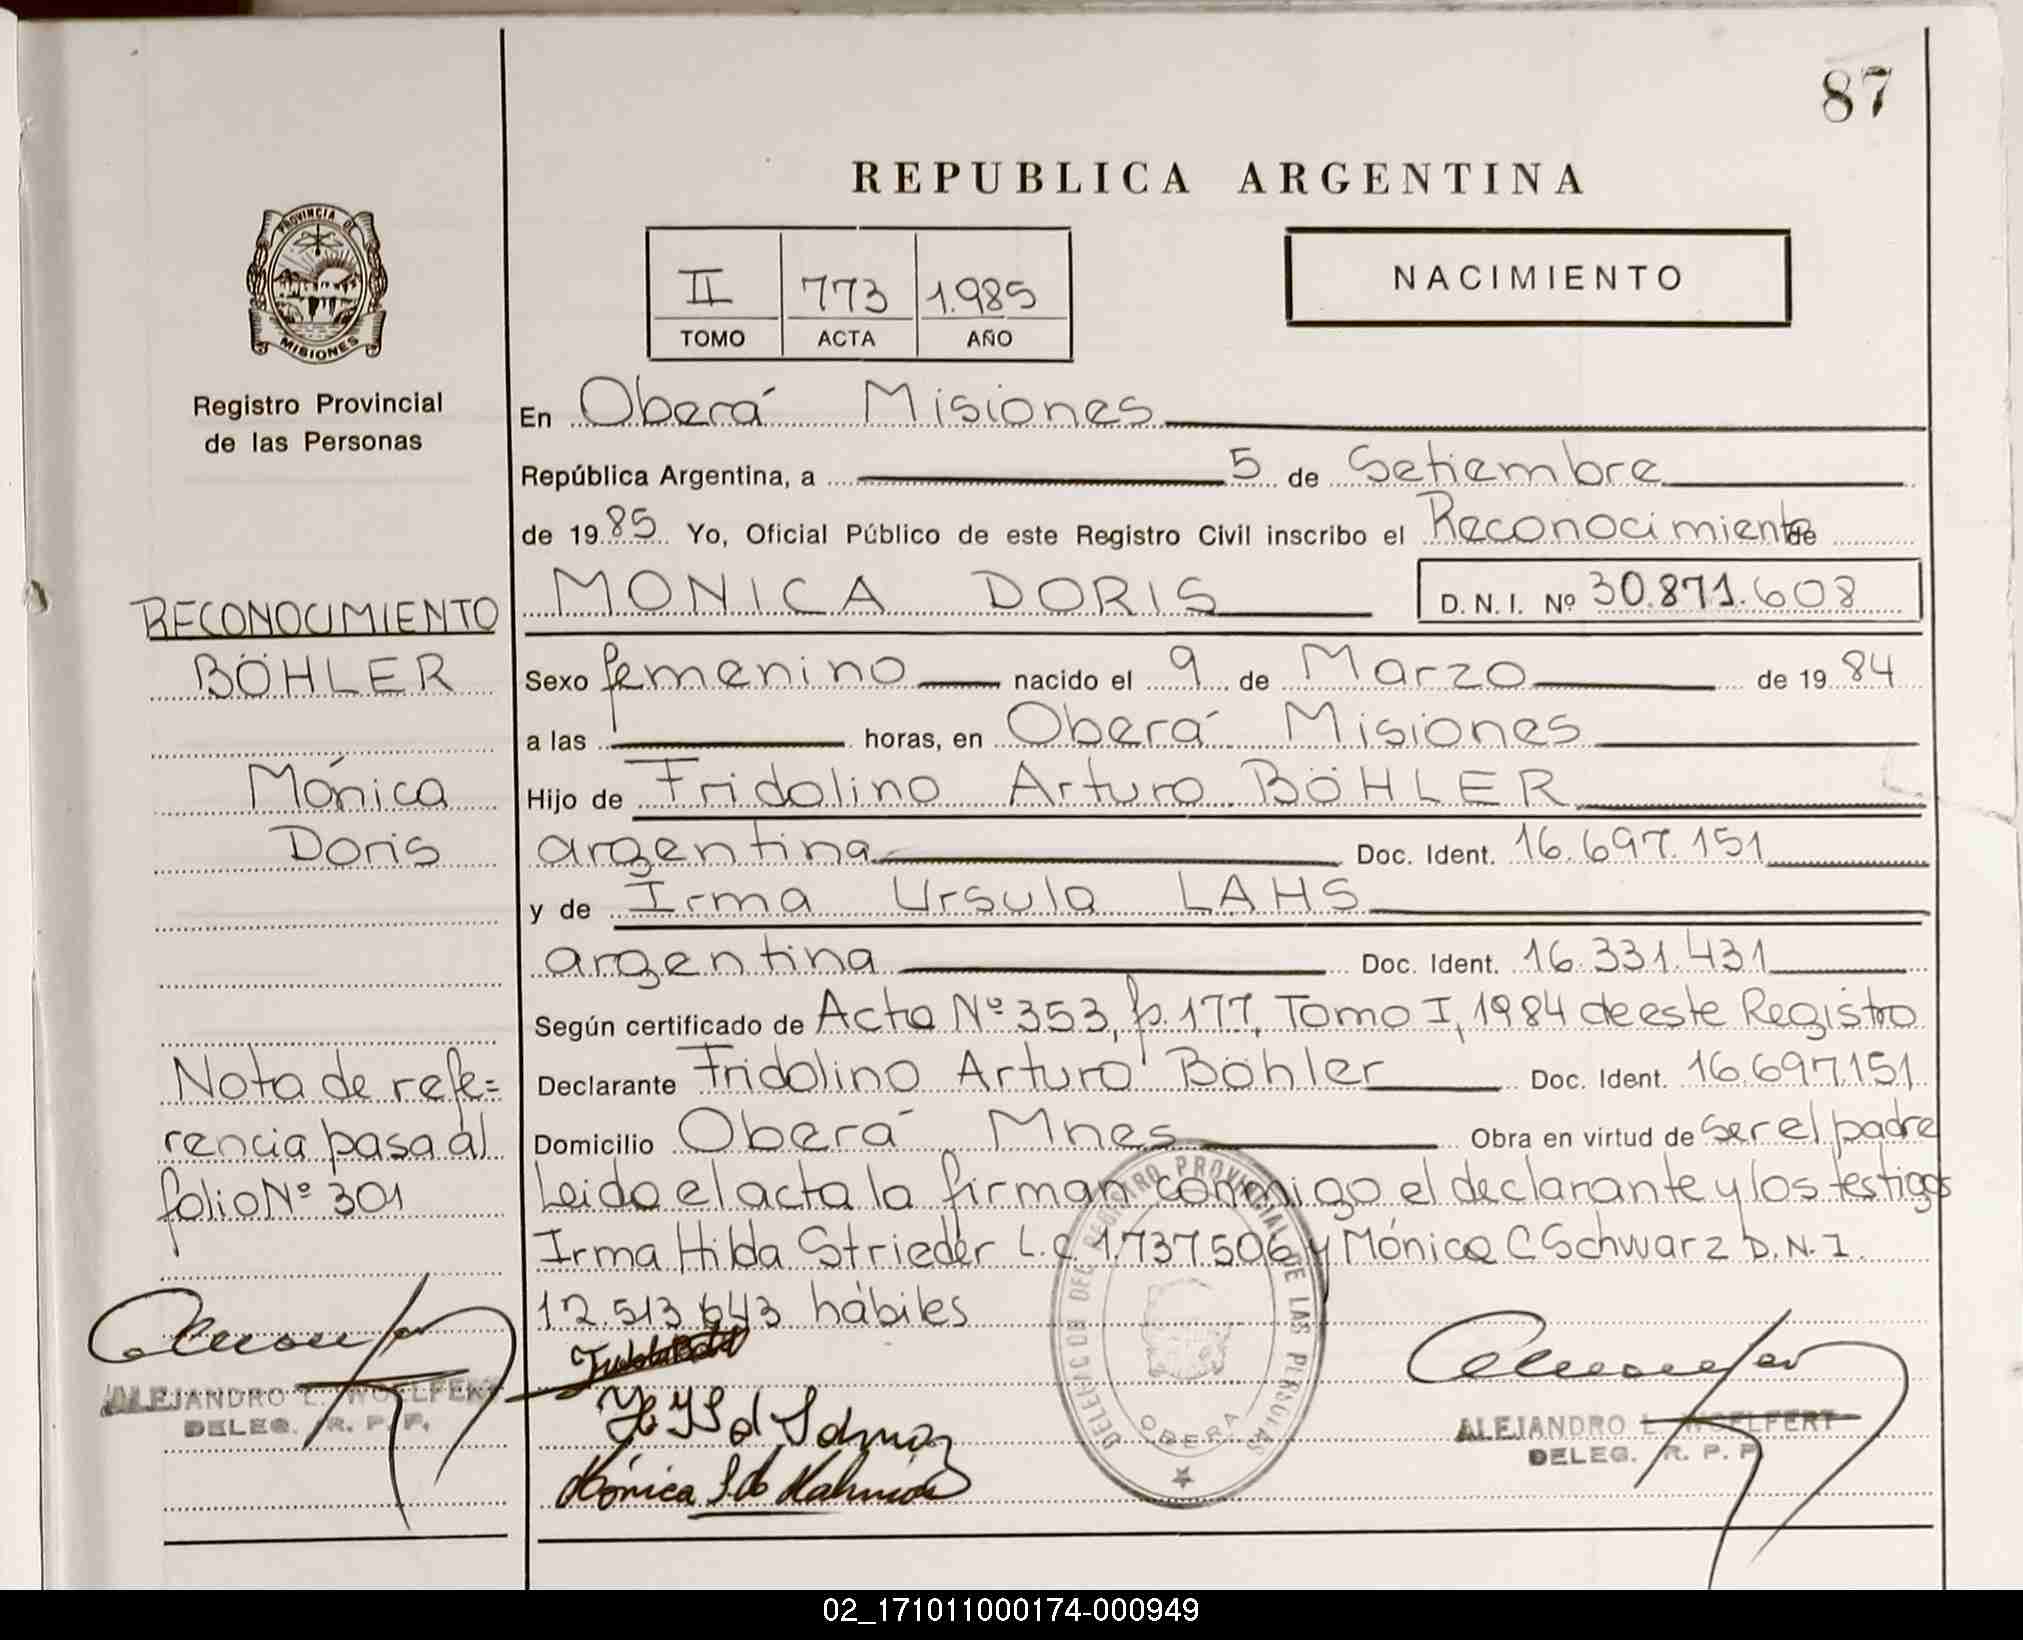 87
REPUBLICA ARGENTINA
PROVINCIA DE
MISIONES
Registro Provincial
de las Personas
II 773 1.985
TOMO ACTA AÑO
NACIMIENTO
En Oberá Misiones
República Argentina, a 5 de Setiembre
de 1985 Yo, Oficial Público de este Registro Civil inscribo el Reconocimiento de
MONICA DORIS D. N. I. Nº 30.871.608
Sexo femenino nacido el 9 de Marzo de 1984
a las horas, en Oberá Misiones
Hijo de Fridolino Arturo BÖHLER
argentina Doc. Ident. 16.697.151
y de Irma Ursula LAHS
argentina Doc. Ident. 16.331.431
Según certificado de Acta Nº 353, fº 177, Tomo I, 1984 de este Registro
Declarante Fridolino Arturo Böhler Doc. Ident. 16.697.151
Domicilio Oberá Mnes Obra en virtud de ser el padre
Leido el acta la firman conmigo el declarante y los testigos
Irma Hilda Strieder L.C. 1.737.506 y Mónica C Schwarz D.N.I.
12.513.643 hábiles
RECONOCIMIENTO
BÖHLER
Mónica
Doris
Nota de refe=
rencia pasa al
folio Nº 301
ALEJANDRO L. WOELFERT
DELEG. R. P. P.
Mónica S. de
DELEGACION DEL REGISTRO PROVINCIAL DE LAS PERSONAS
OBERA
ALEJANDRO L. WOELFERT
DELEG. R. P. P.
02_171011000174-000949